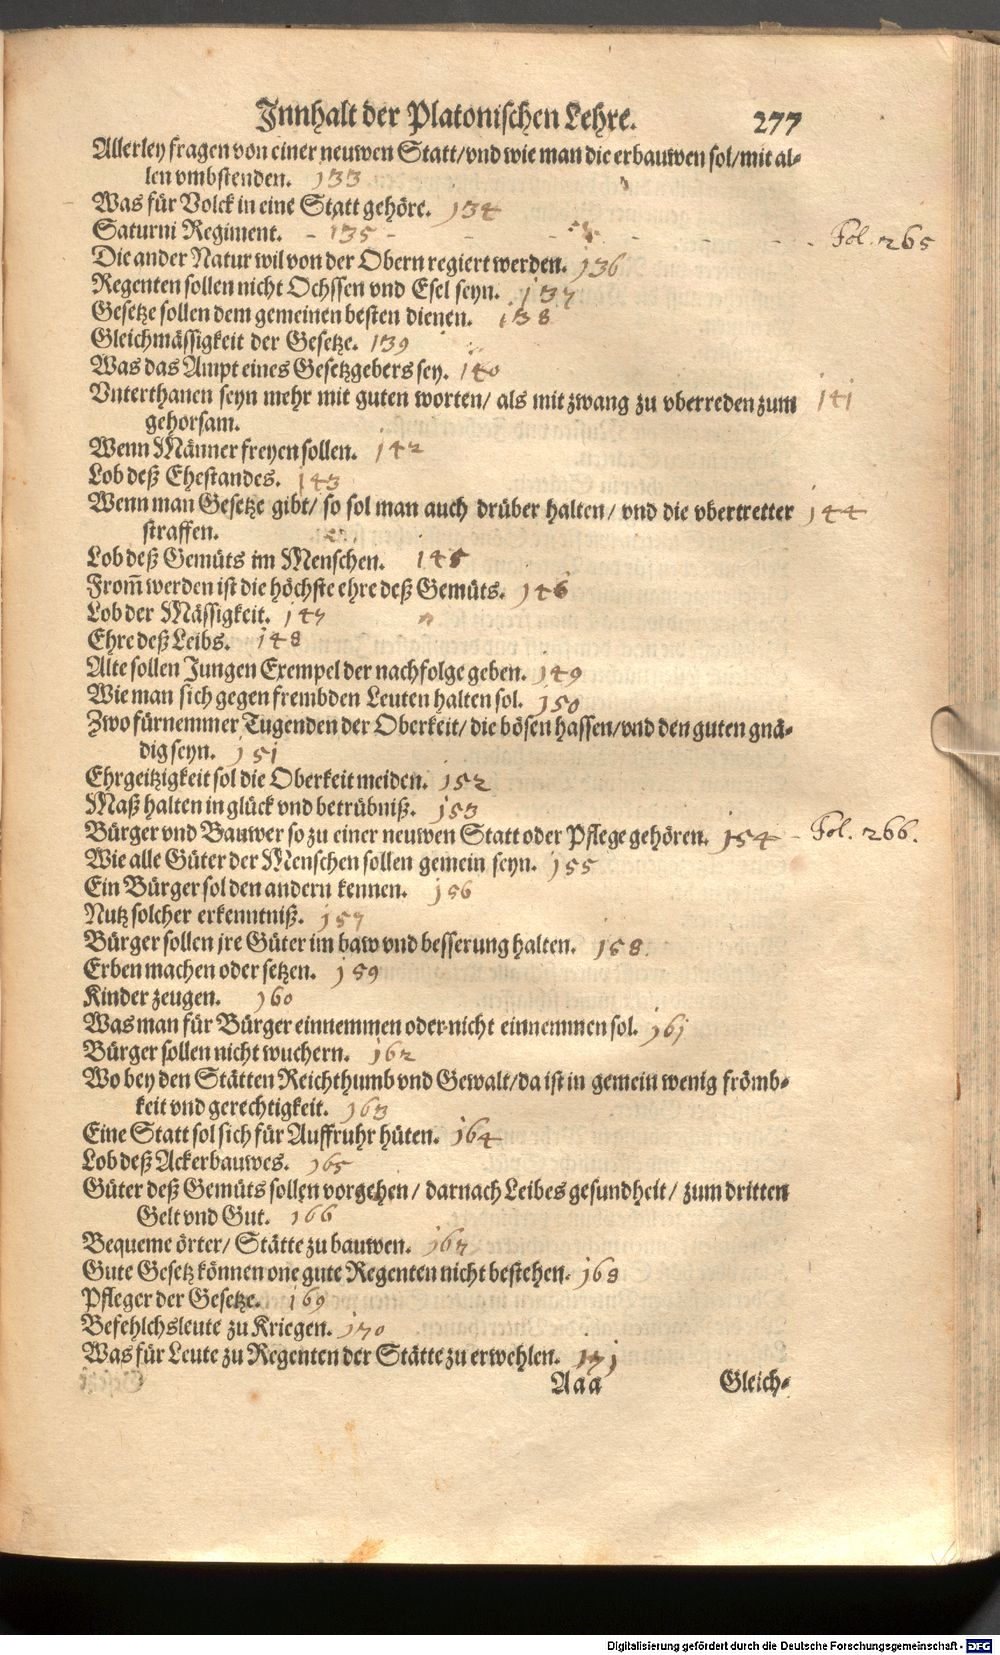 Innhalt der Platonischen Lehre. 277
Allerley fragen von einer neuwen Statt/vnd wie man die erbauwen sol/mit al-
len vmbstenden. 133
Was für Volck in eine Statt gehöre. 134
Saturni Regiment. - 135 - - - - - - - Fol. 265
Die ander Natur wil von der Obern regiert werden. 136
Regenten sollen nicht Ochssen vnd Esel seyn. 137
Gesetze sollen dem gemeinen besten dienen. 138
Gleichmässigkeit der Gesetze. 139
Was das Ampt eines Gesetzgebers sey. 140
Vnterthanen seyn mehr mit guten worten/ als mit zwang zu vberreden zum 141
gehorsam.
Wenn Männer freyen sollen. 142
Lob deß Ehestandes. 143
Wenn man Gesetze gibt/ so sol man auch drüber halten/ vnd die vbertretter 144
straffen.
Lob deß Gemüts im Menschen. 145
From̃ werden ist die höchste ehre deß Gemüts. 146
Lob der Mässigkeit. 147
Ehre deß Leibs. 148
Alte sollen Jungen Exempel der nachfolge geben. 149
Wie man sich gegen frembden Leuten halten sol. 150
Zwo fürnemmer Tugenden der Oberkeit/ die bösen hassen/vnd den guten gnä-
dig seyn. 151
Ehrgeitzigkeit sol die Oberkeit meiden. 152
Maß halten in glück vnd betrübniß. 153
Bürger vnd Bauwer so zu einer neuwen Statt oder Pflege gehören. 154 - Fol. 266.
Wie alle Güter der Menschen sollen gemein seyn. 155
Ein Bürger sol den andern kennen. 156
Nutz solcher erkenntniß. 157
Bürger sollen jre Güter im baw vnd besserung halten. 158.
Erben machen oder setzen. 159
Kinder zeugen. 160
Was man für Bürger einnemmen oder nicht einnemmen sol. 161
Bürger sollen nicht wuchern. 162
Wo bey den Stätten Reichthumb vnd Gewalt/da ist in gemein wenig frömb-
keit vnd gerechtigkeit. 163
Eine Statt sol sich für Auffruhr hüten. 164
Lob deß Ackerbauwes. 165
Güter deß Gemüts sollen vorgehen/ darnach Leibes gesundheit/ zum dritten
Gelt vnd Gut. 166
Bequeme örter/ Stätte zu bauwen. 167
Gute Gesetz können one gute Regenten nicht bestehen. 168
Pfleger der Gesetze. 169
Befehlchsleute zu Kriegen. 170
Was für Leute zu Regenten der Stätte zu erwehlen. 171
Aaa Gleich-
Digitalisierung gefördert durch die Deutsche Forschungsgemeinschaft - DFG